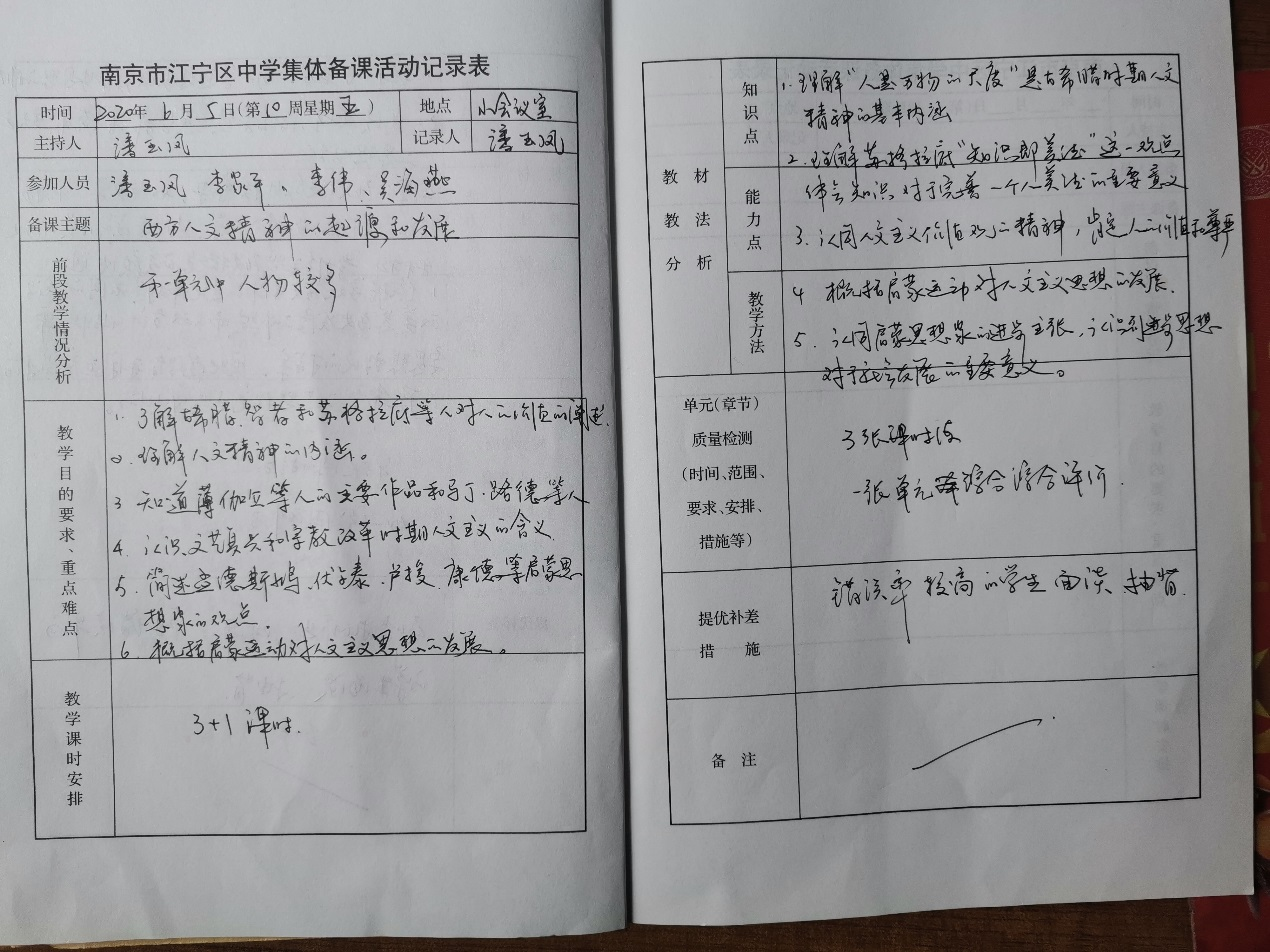 南京市江宁区中学集体备课活动记录表
时间 2020年 6月 5日(第10周星期五) 地点 小会议室
主持人 潘玉凤 记录人 潘玉凤
参加人员 潘玉凤 李家平、李伟、吴海燕
备课主题 西方人文精神的起源和发展
前段教学情况分析
第一单元中人物较多
教学目的要求、重点难点
1. 了解古希腊智者和苏格拉底等人对人的价值的阐述.
2. 理解人文精神的内涵。
3 知道薄伽丘等人的主要作品和马丁·路德等人
4. 认识文艺复兴和宗教改革时期人文主义的含义
5. 简述孟德斯鸠、伏尔泰、卢梭、康德等启蒙思
想家的观点。
6. 概括启蒙运动对人文主义思想的发展。
教学课时安排
3+1 课时.
教材教法分析
知识点
1. 理解“人是万物的尺度”是古希腊时期人文
精神的基本内涵
2. 理解苏格拉底“知识即美德”这一观点
能力点
体会知识对于完善一个人美德的主要意义
3. 认同人文主义价值观的精神,肯定人的价值和尊严
教学方法
4 概括启蒙运动对人文主义思想的发展.
5. 认同启蒙思想家的进步主张,认识到进步思想
对于社会发展的主要意义。
单元(章节)
质量检测
(时间、范围、
要求、安排、
措施等)
3张课时练
一张单元综合评价.
提优补差
措 施
错误率较高的学生面谈、抽背.
备 注